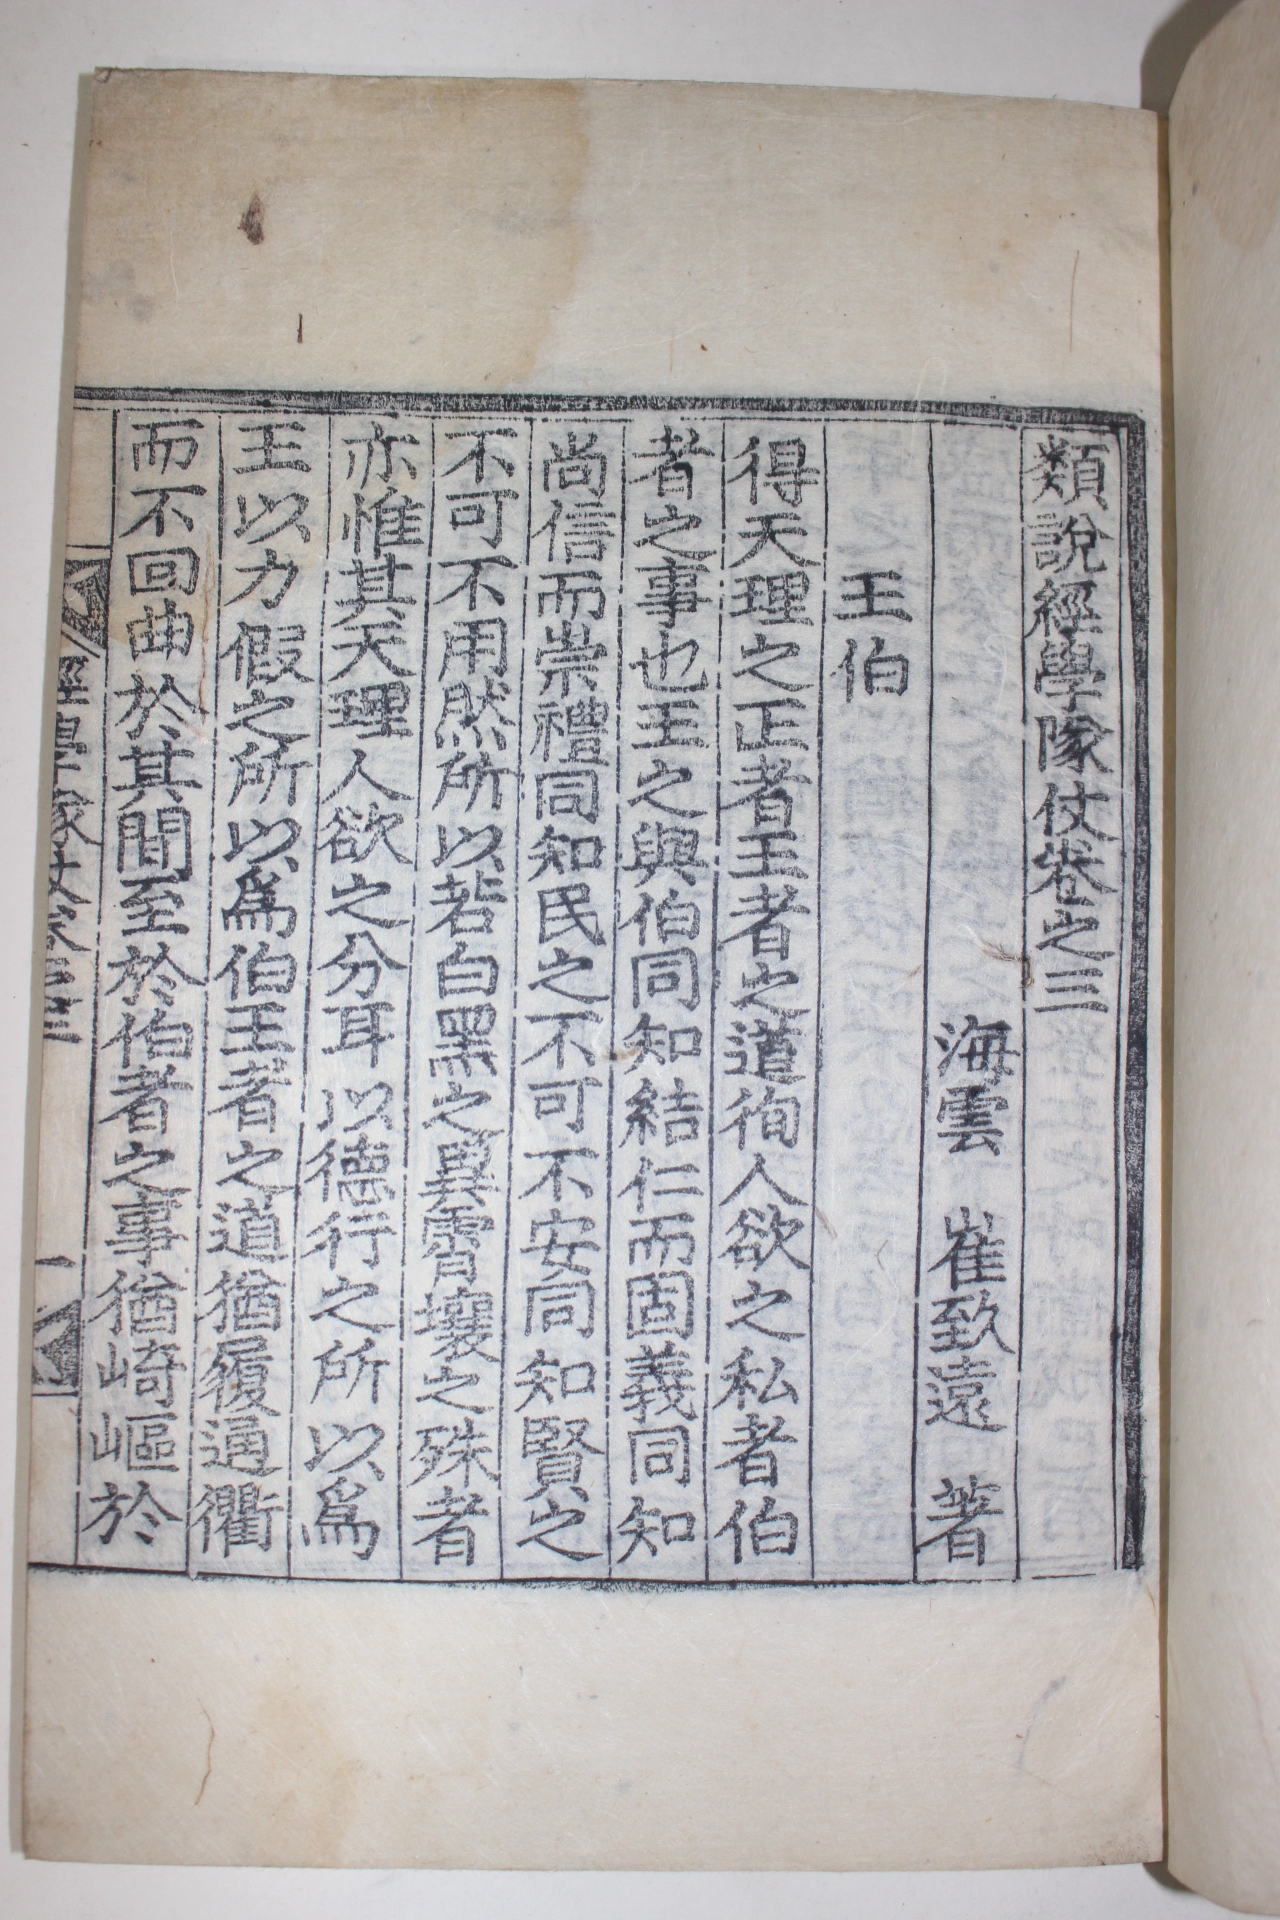 類說經學隊仗卷之三
海雲 崔致遠 著
王伯
得天理之正者王者之道徇人欲之私者伯
者之事也王之與伯同知結仁而固義同知
尚信而崇禮同知民之不可不安同知賢之
不可不用然所以若白黑之異霄壤之殊者
亦惟其天理人欲之分耳以德行之所以爲
王以力假之所以爲伯王者之道猶履通衢
而不回曲於其間至於伯者之事猶崎嶇於
經學隊仗卷三 一